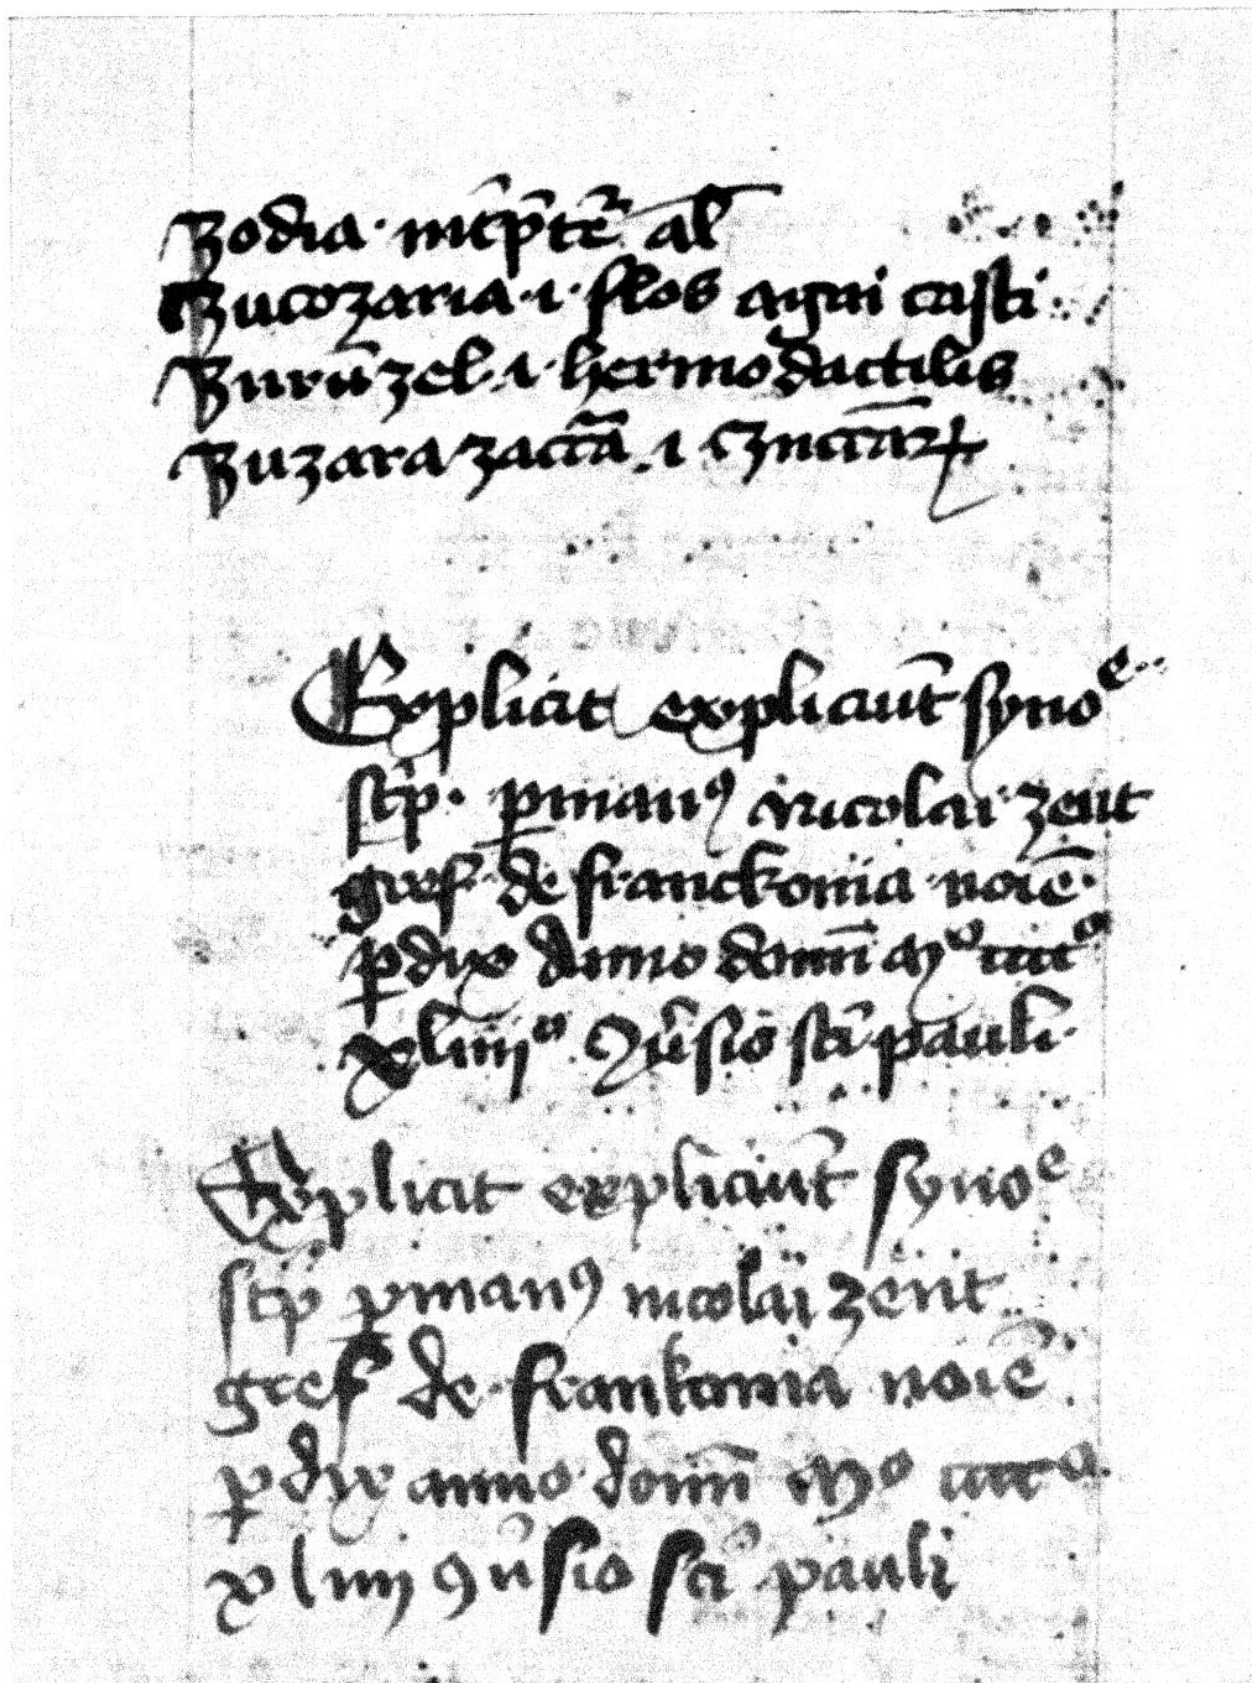 Zodia · int̄p̄tē al̄
Zucozaria · i · flos agni casti
Zurūzel · i · hermodactilis
Zuzara zaccā · i
Explicit expliciūt synoᵉ
sc̄p · ꝑmanꝰ nicolai zent
gref · de franckonia noīē
ꝑdix Anno dominī Mᵒ ccccᵒ
xliiijᵒ ꝯūsio sc̄i pauli
Explicit expliciūt synoᵉ
sc̄p ꝑmanꝰ nicolai zent
gref de · frankonia noīē
ꝑdix anno dominī Mᵒ ccccᵒ
xliiij ꝯūsio sc̄i pauli